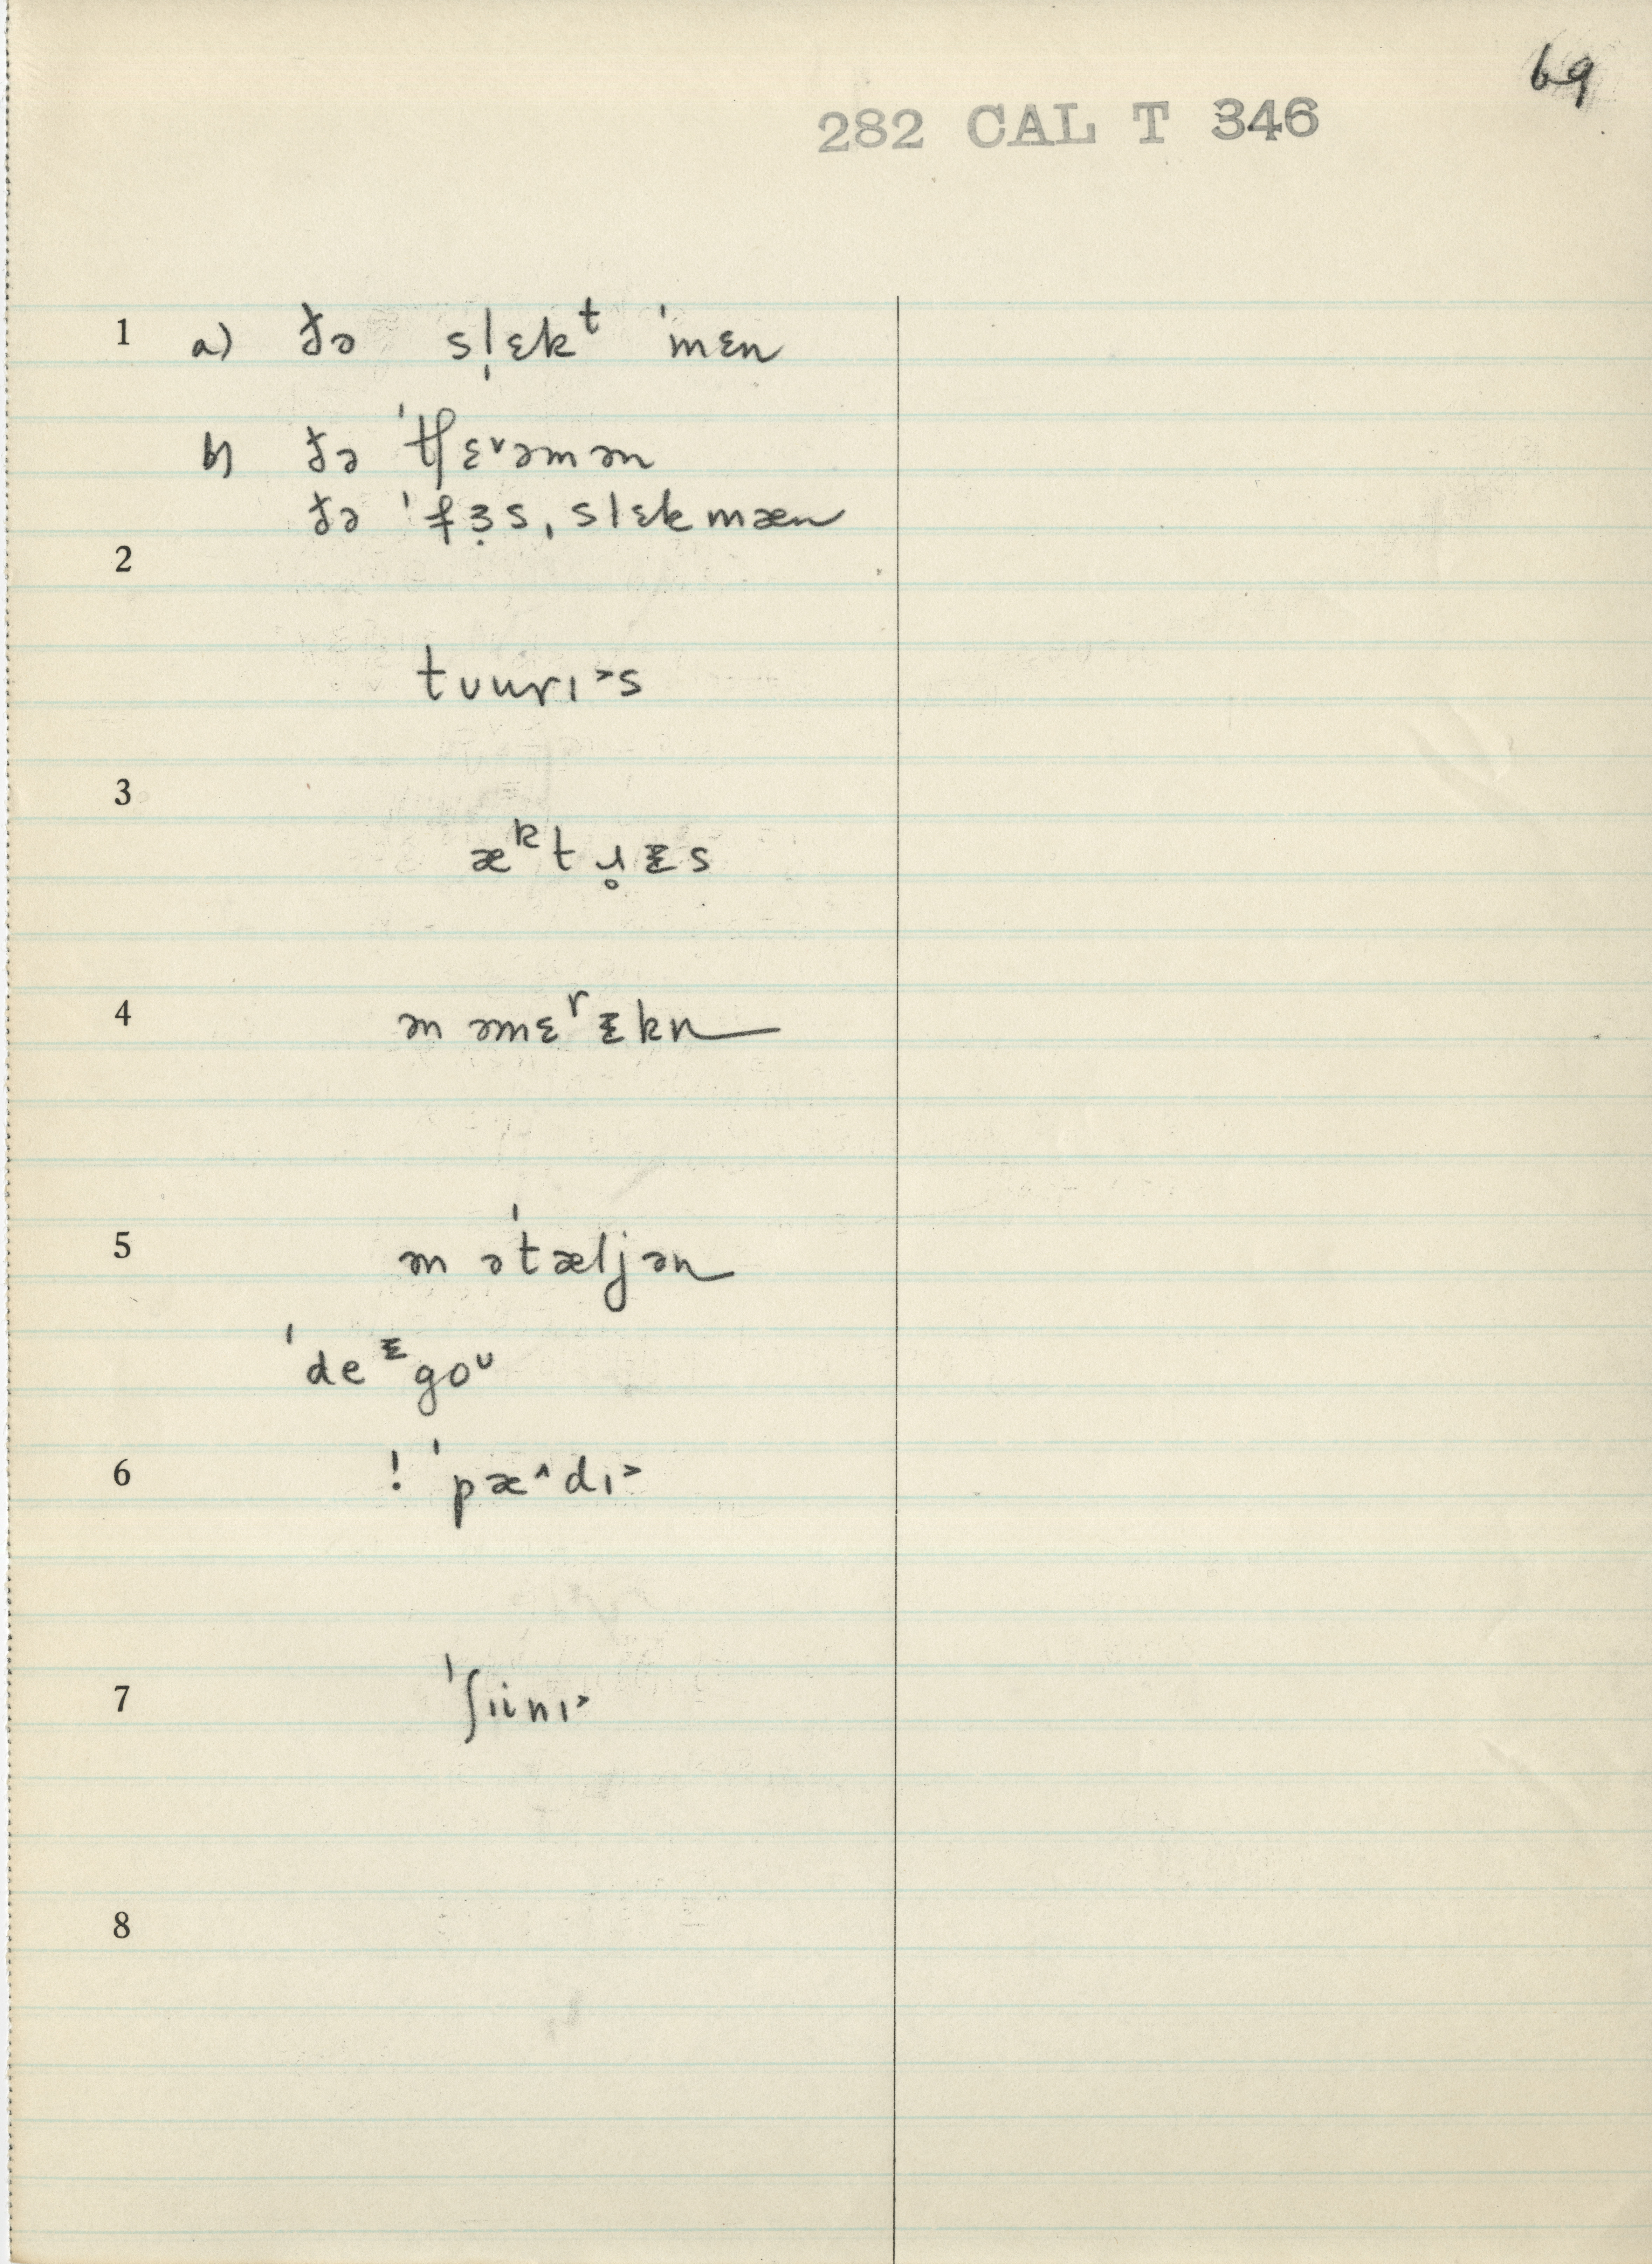 69
282 CAL T 346
1 a) ðə sl̩ɛkᵗ ˈmɛn
b) ðə ˈtʃɛᵛəmən
ðə ˈfɜ̣s, slɛkmæn
2
tᴜurɪ˃s
3
æᵏtɹ̥ɪs
4 ən əmɛʳɪkn
5 ən əˈtæljən
ˈdeᶦgoᶷ
6 ! ˈpæ˄dɪ˃
7 ˈʃɪinɪ˃
8